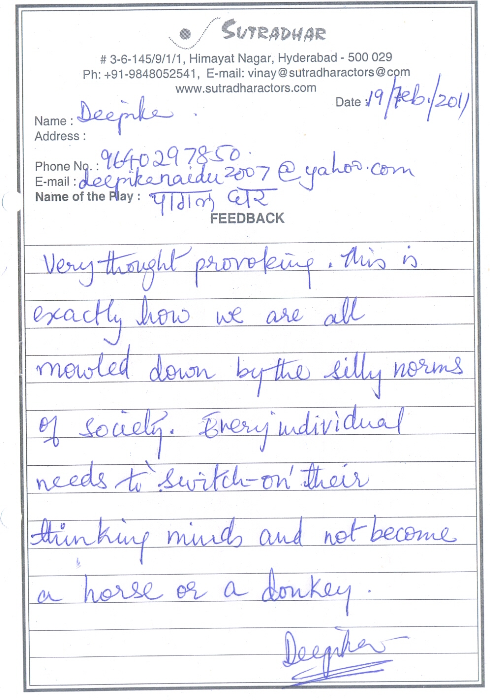 SUTRADHAR
# 3-6-145/9/1/1, Himayat Nagar, Hyderabad - 500 029
Ph: +91-9848052541, E-mail: vinay@sutradharactors@com
www.sutradharactors.com
Date : 19/Feb./2011
Name : Deepika .
Address :
Phone No. : 9640297850.
E-mail : deepikanaidu2007@yahoo.com
Name of the Play :
FEEDBACK
Very thought provoking. this is
exactly how we are all
mowled down by the silly norms
of society. Every individual
needs to 'switch-on' their
thinking minds and not become
a horse or a donkey.
Deepika